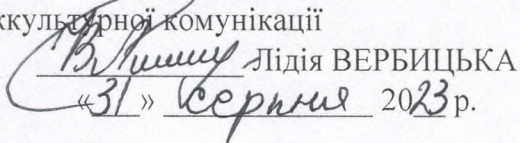 жкультурної комунікації
Лідія ВЕРБИЦЬКА
«31» серпня 2023 р.